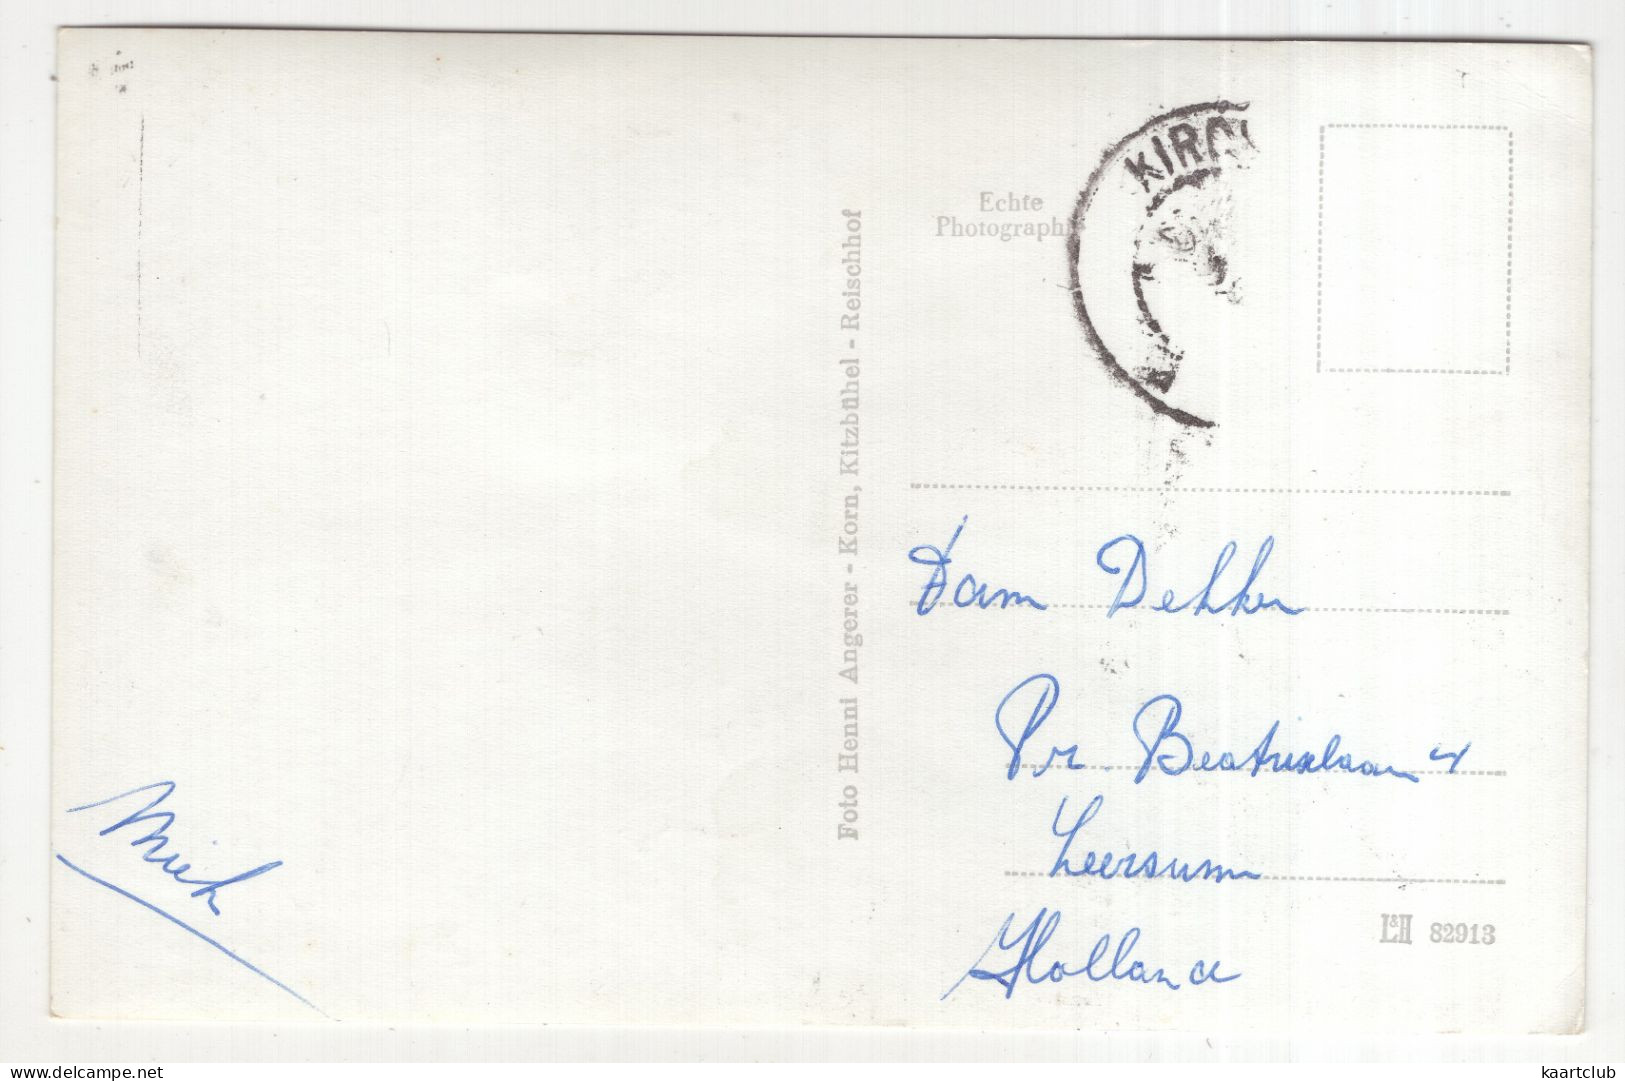 Echte
Photographie
KIRCH
Foto Henni Angerer - Korn, Kitzbühel - Reischhof
Fam Dekker
Pr. Beatrixlaan 4
Leersum
Holland
Miek
L&H 82913
www.delcampe.net
kaartclub